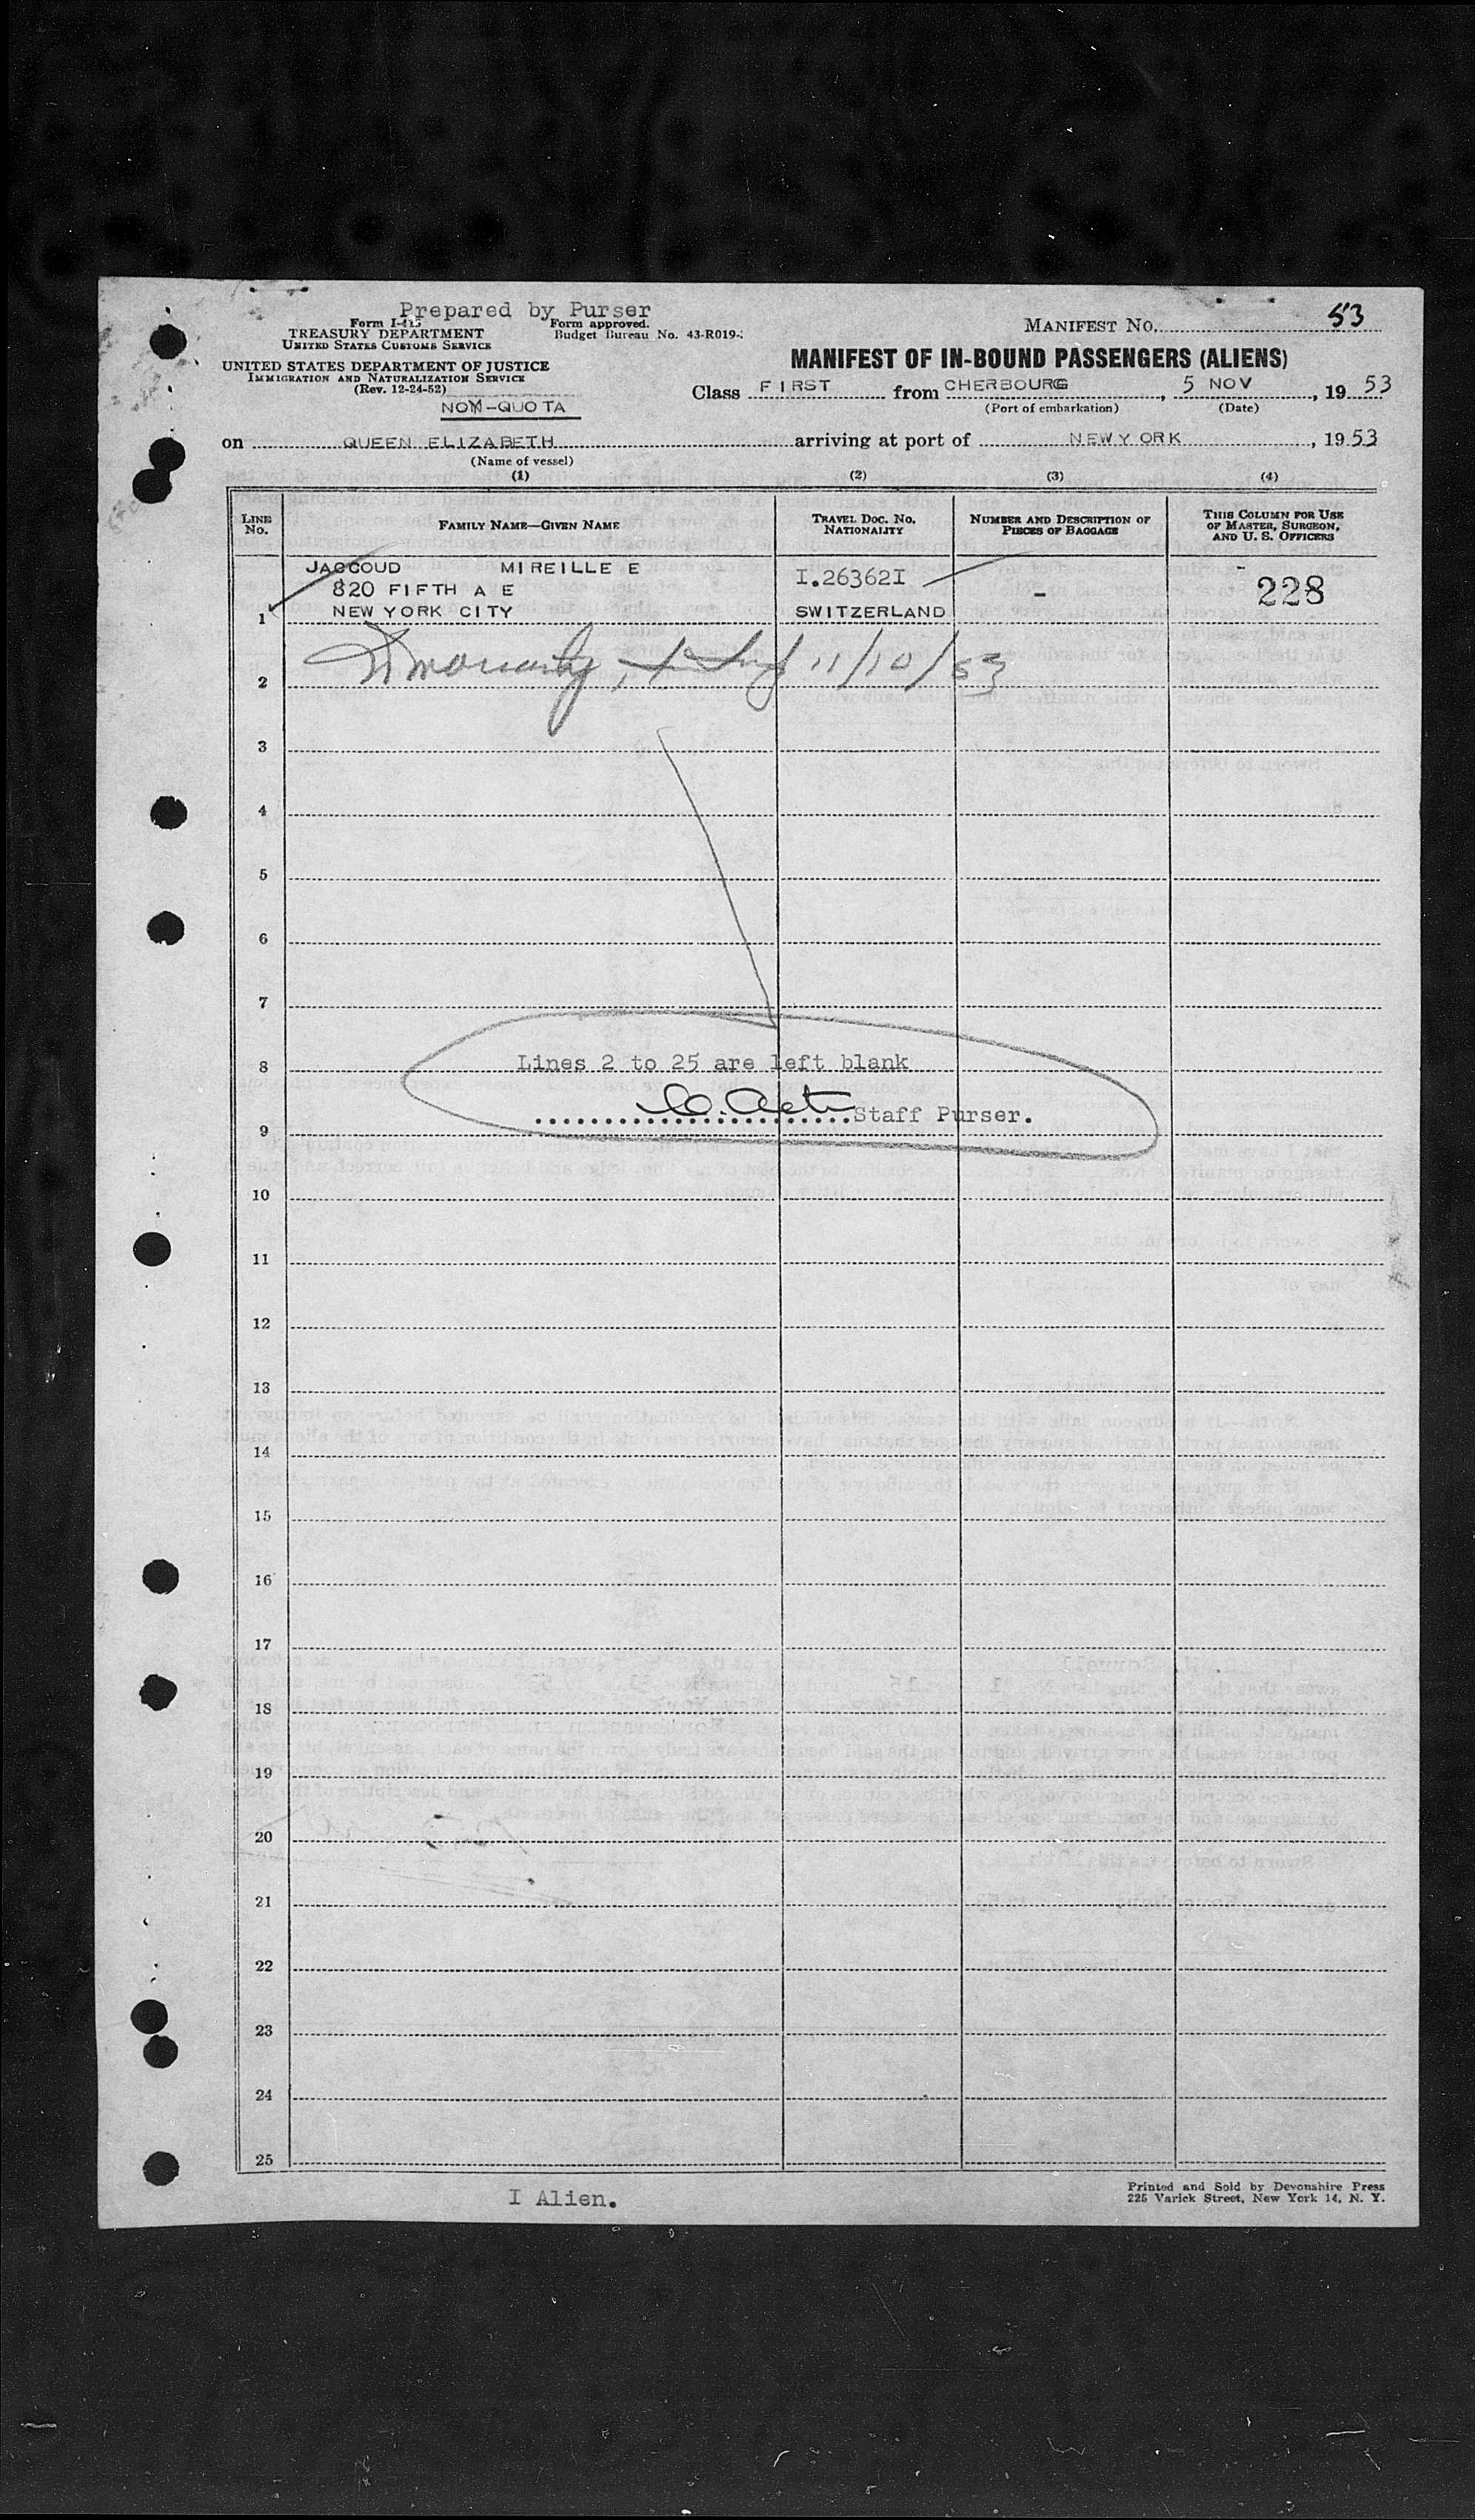 Prepared by Purser
Form I-415 Form approved.
TREASURY DEPARTMENT Budget Bureau No. 43-R019-
UNITED STATES CUSTOMS SERVICE
MANIFEST NO. 53
UNITED STATES DEPARTMENT OF JUSTICE
IMMIGRATION AND NATURALIZATION SERVICE
(Rev. 12-24-52)
NON-QUOTA
MANIFEST OF IN-BOUND PASSENGERS (ALIENS)
Class FIRST from CHERBOURG, 5 NOV, 19 53
(Port of embarkation) (Date)
on QUEEN ELIZABETH arriving at port of NEW YORK, 1953
(Name of vessel)
(1) (2) (3) (4)
LINE No. FAMILY NAME—GIVEN NAME TRAVEL DOC. NO. NATIONALITY NUMBER AND DESCRIPTION OF PIECES OF BAGGAGE THIS COLUMN FOR USE OF MASTER, SURGEON, AND U. S. OFFICERS
JACCOUD MIREILLE E I.26362I - 228
820 FIFTH A E
1 NEW YORK CITY SWITZERLAND
2 11/10/53
3
4
5
6
7
8 Lines 2 to 25 are left blank
Staff Purser.
9
10
11
12
13
14
15
16
17
18
19
20
21
22
23
24
25
I Alien.
Printed and Sold by Devonshire Press
225 Varick Street, New York 14, N. Y.